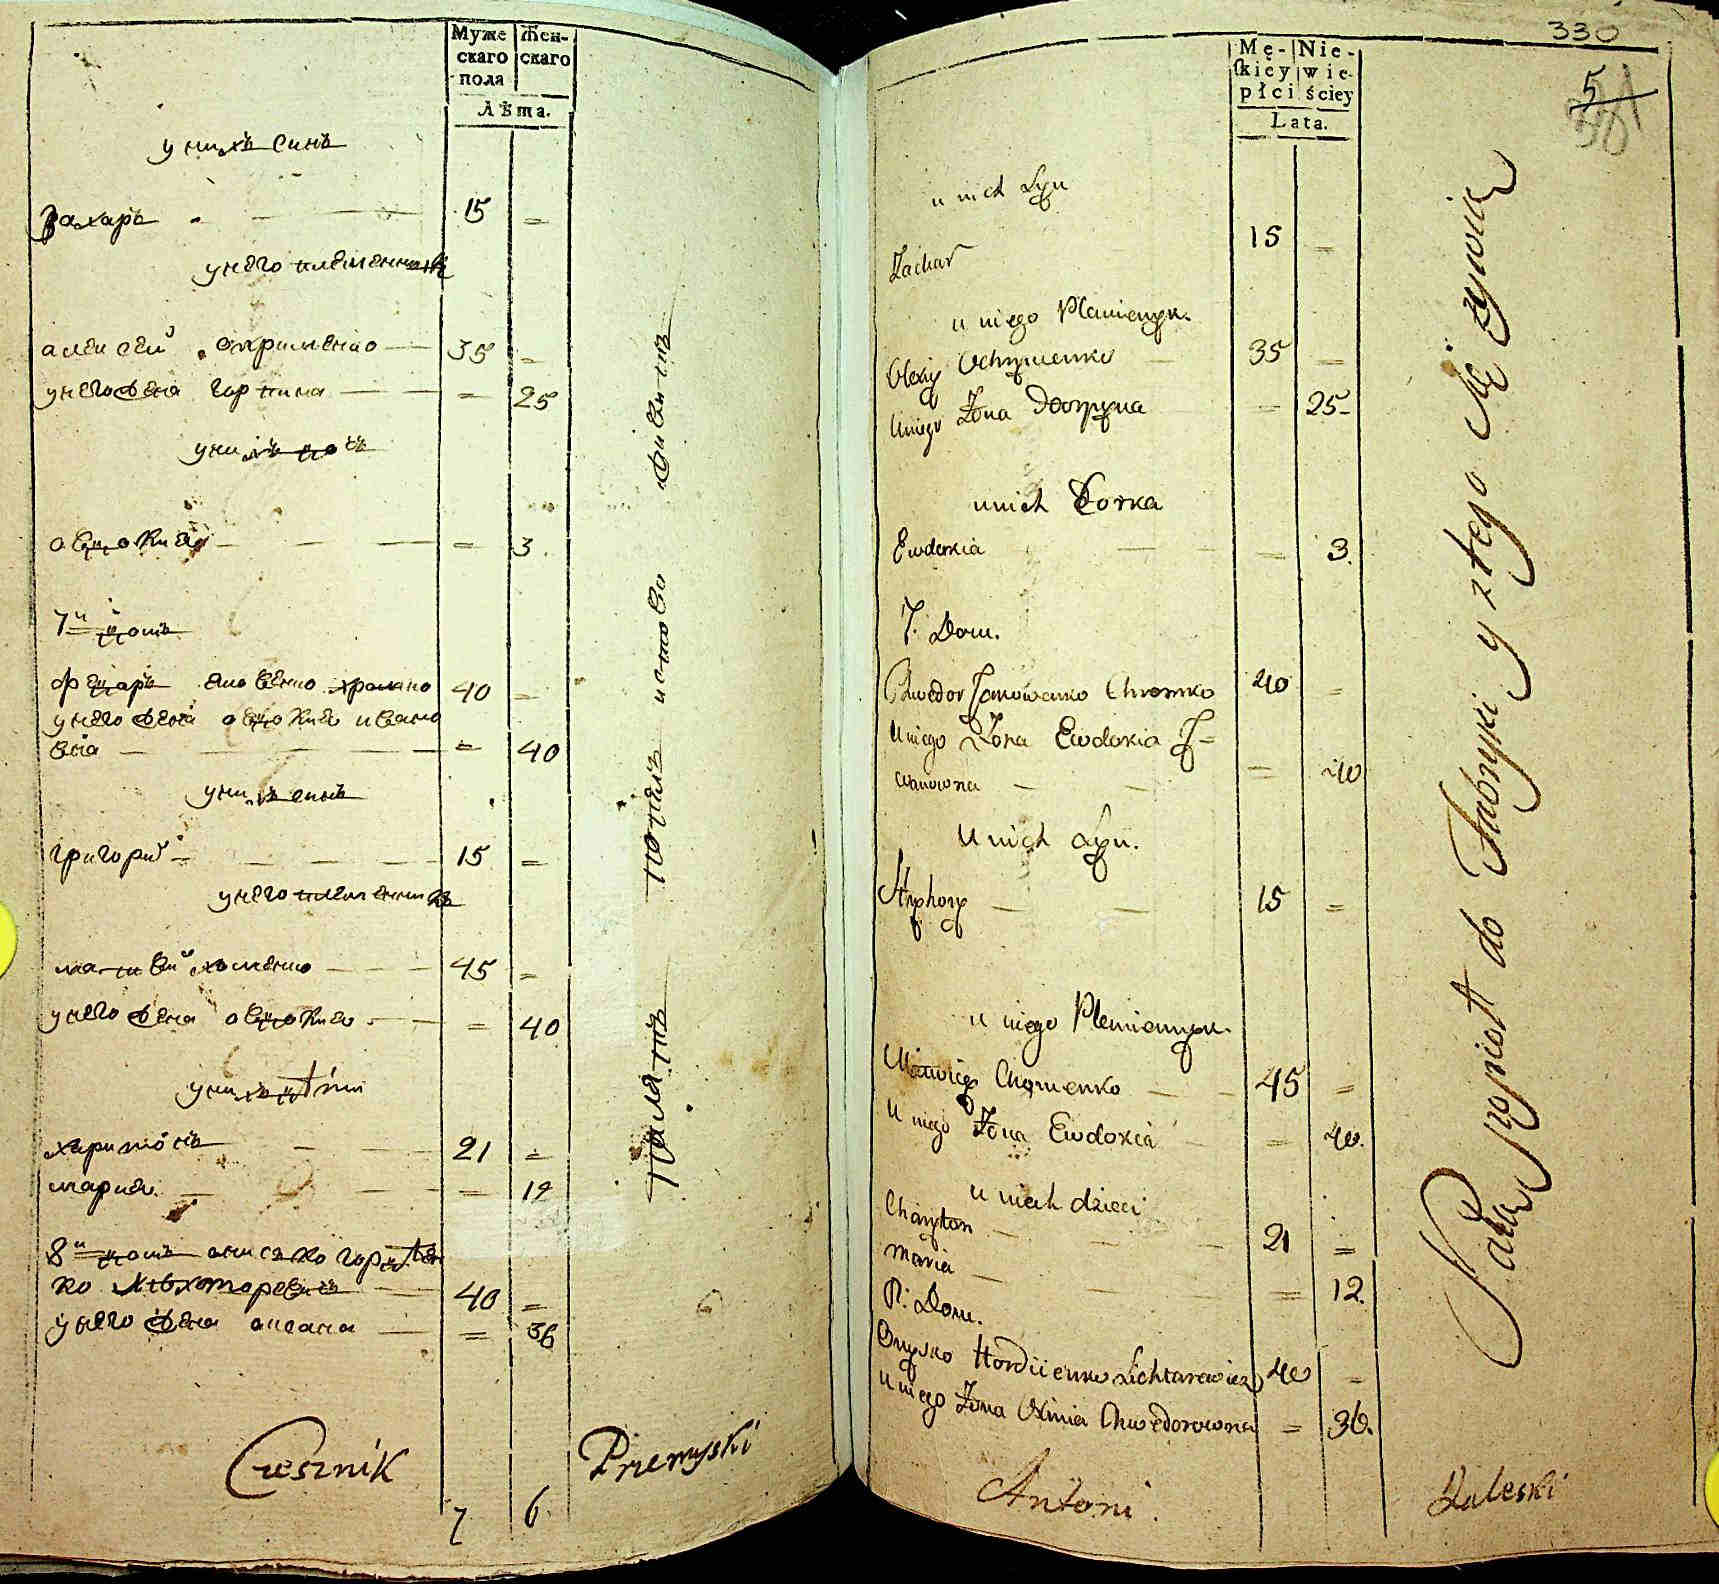 Муже
скаго
пола
Жен-
скаго
Лѣта.
у нихъ синъ
Захаръ 15 =
у него племенникъ
алексей охрименко 35 =
у него жена горпина = 25
у нихъ дочъ
овдокия = 3
7й домъ
федоръ яковенко хромко 40 =
у него жена овдокия ивано
вна = 40
у нихъ синъ
григорий 15 =
у него племенникъ
матвий хоменко 45 =
у него жена овдокия = 40
у нихъ дѣти
харитонъ 21 =
мария = 12
8й домъ
ко Лихторевичъ 40 =
у него жена оксана = 36
Czesznik
7 6
Priemyski
330
5
Mę-
skiey
płci
Nie-
wie-
ściey
Lata.
u nich Syn
Zachar 15 =
u niego Plemienyk.
Olexiy Ochrymenko 35 =
U niego Żona Horpyna = 25
u nich Corka
Ewdokia = 3.
7. Dom.
Chwedor Jakowenko Chromko 40 =
U niego Żona Ewdokia J-
wanowna = 40
U nich Syn.
Hryhory 15 =
u niego Plemiennyk.
Matwiey Chomenko 45 =
U niego Żona Ewdokia = 40.
u nich dzieci
Charyton 21 =
Maria = 12.
8: Dom.
Onysko Hordiienko Lichtarowicz 40 =
U niego Żona Chwedorowna = 36.
Antoni Zaleski